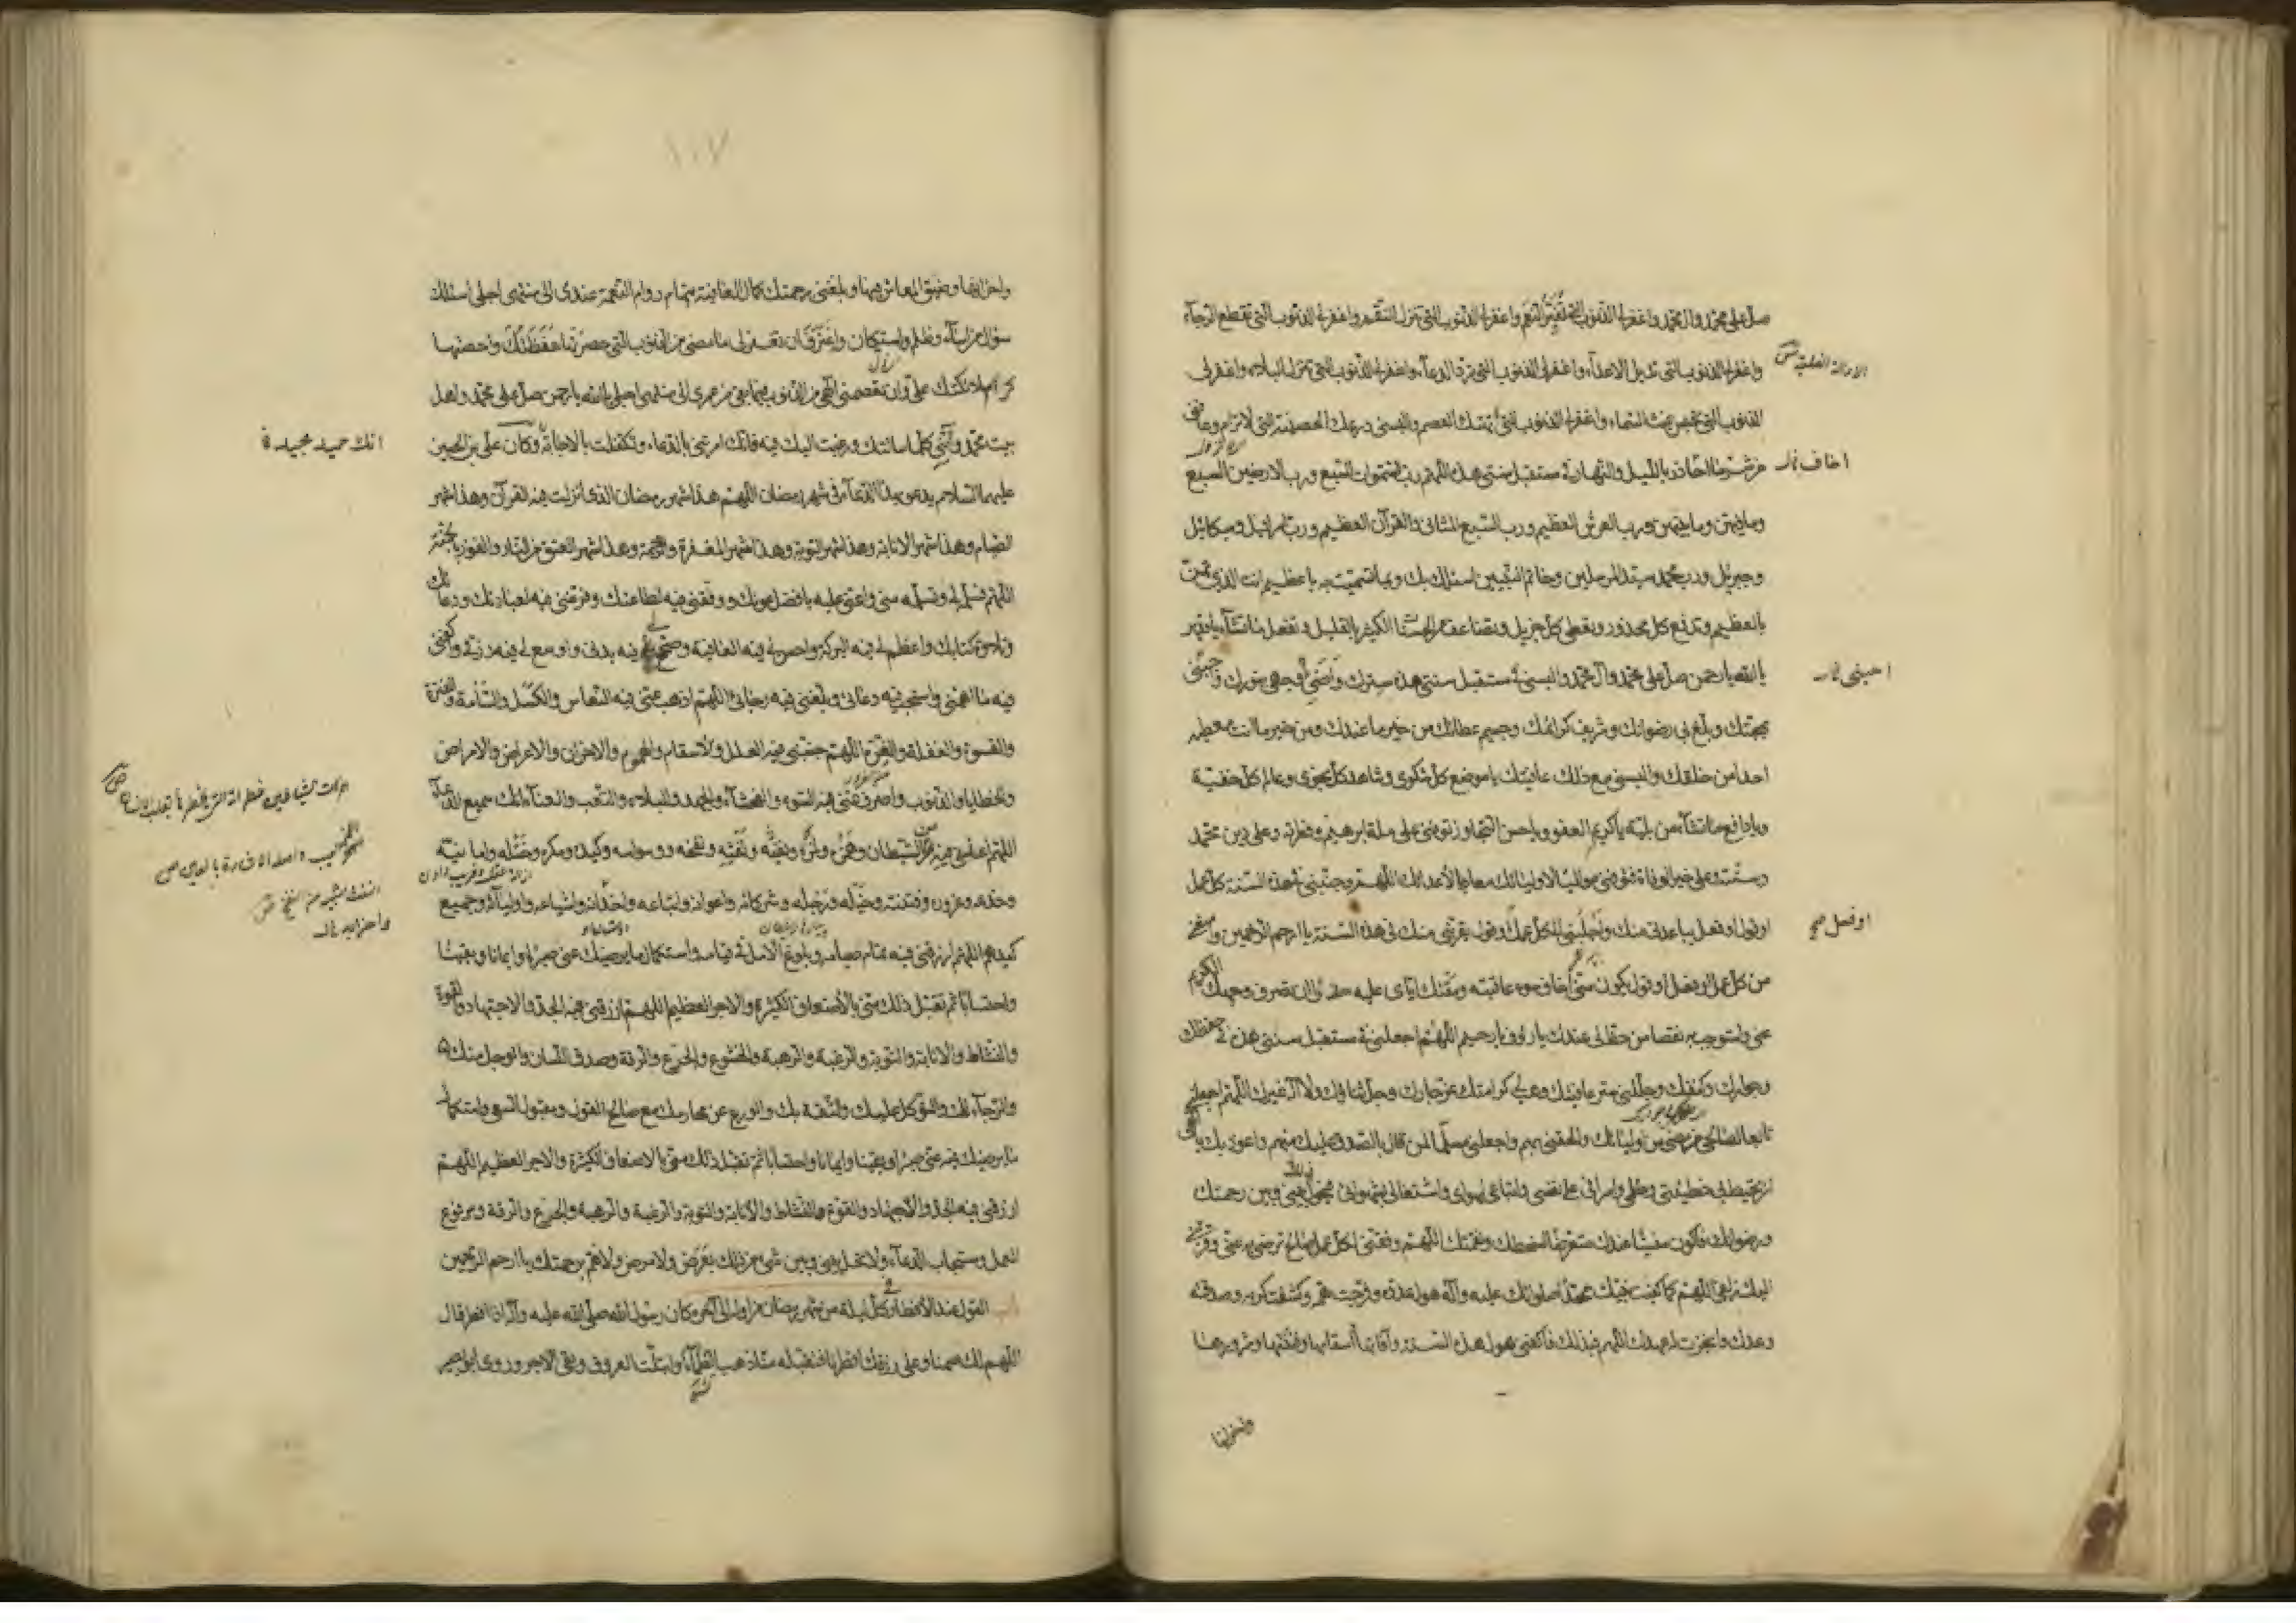 صل على محمد وال محمد واغفر لى الذنوب التى تغير النعم واغفر لى الذنوب التى تنزل النقم واغفر لى الذنوب التى تقطع الرجآء
واغفر لى الذنوب التى تديل الاعدآء واغفر لى الذنوب التى ترد الدعآء واغفر لى الذنوب التى تنزل البلاء واغفر لى
الذنوب التى تحبس غيث السماء واغفر لى الذنوب التى تهتك العصم والبسنى درعك الحصينة التى لا ترام وعافنى
من شر ما احاذر بالليل والنهار فى مستقبل سنتى هذه اللهم رب السموات السبع ورب الارضين السبع
اخاف
وما فيهن وما بينهن ورب العرش العظيم ورب السبع المثانى والقرآن العظيم ورب اسرافيل وميكائيل
وجبرئيل ورب محمد سيد المرسلين وخاتم النبيين اسئلك بك وبما تسميت به يا عظيم انت الذى تمن
بالعظيم وتدفع كل محذور وتعطى كل جزيل وتضاعف من الحسنات الكثير بالقليل وتفعل ما تشآء يا قدير
يا الله يا رحمن صل على محمد وآل محمد والبسنى فى مستقبل سنتى هذه سترك واضئ وجهى بنورك واحبنى
احينى
بمحبتك وبلغ بى رضوانك وشريف كرائمك وجسيم عطائك من خير ما عندك ومن خير ما انت معطيه
احدا من خلقك والبسنى مع ذلك عافيتك يا موضع كل شكوى وشاهد كل نجوى وعالم كل خفية
ويا دافع ما تشآء من بلية يا كريم العفو ويا حسن التجاوز توفنى على ملة ابرهيم وفطرته وعلى دين محمد
وسنته وعلى خير الوفاة فتوفنى مواليا لاوليائك معاديا لاعدائك اللهم وجنبنى فى هذه السنة كل عمل
او قول او فعل يباعدنى منك واجلبنى الى كل عمل او قول يقربنى منك فى هذه السنة يا ارحم الراحمين وامنعنى
او فعل صح
من كل عمل او فعل او قول يكون منى اخاف سوء عاقبته ومقتك اياى عليه حذرا ان تصرف وجهك الكريم
عنى واستوجب به نقصا من حظ لى عندك يا رؤف يا رحيم اللهم اجعلنى فى مستقبل سنتى هذه فى حفظك
وجوارك وكنفك وجللنى ستر عافيتك وهب لى كرامتك عز جارك وجل ثناؤك ولا اله غيرك اللهم اجعلنى
تابعا لصالحى من مضى من اوليائك والحقنى بهم واجعلنى مسلما لمن قال بالصدق عليك منهم واعوذ بك يا الهى
ان تحيط بى خطيئتى وظلمى واسرافى على نفسى واتباعى لهواى واشتغالى بشهواتى فيحول ذلك بينى وبين رحمتك
ورضوانك فاكون منسيا عندك متعرضا لسخطك ونقمتك اللهم وفقنى لكل عمل صالح ترضى به عنى وقربنى
اليك زلفى اللهم كما كفيت نبيك محمدا صلواتك عليه وآله هول عدوه وفرجت همه وكشفت كربه وصدقته
وعدك وانجزت له عهدك اللهم فبذلك فاكفنى هول هذه السنة وآفاتها واسقامها وفتنتها وشرورها
واحزانها
١٠٧
واحزانها وضيق المعاش فيها وبلغنى برحمتك كمال العافية بتمام دوام النعمة عندى الى منتهى اجلى اسئلك
سؤال من اسآء وظلم واستكان واعترف ان تغفر لى ما مضى من الذنوب التى حصرتها حفظتك واحصتها
كرام ملائكتك على وان تعصمنى الهى من الذنوب فيما بقى من عمرى الى منتهى اجلى يا الله يا رحمن صل على محمد واهل
بيت محمد وآتنى كلما سالتك ورغبت اليك فيه فانك امرتنى بالدعاء وتكفلت بالاجابة وكان على بن الحسين
انك حميد مجيد
عليهما السلام يدعو بهذا الدعآء فى شهر رمضان اللهم هذا شهر رمضان الذى انزلت فيه القرآن وهذا شهر
الصيام وهذا شهر الانابة وهذا شهر التوبة وهذا شهر المغفرة والرحمة وهذا شهر العتق من النار والفوز بالجنة
اللهم فسلمه لى وتسلمه منى واعنى عليه بافضل عونك ووفقنى فيه لطاعتك وفرغنى فيه لعبادتك ودعائك
وتلاوة كتابك واعظم لى فيه البركة واحسن لى فيه العافية وصحح فيه بدنى واوسع لى فيه رزقى واكفنى
فيه ما اهمنى واستجب فيه دعائى وبلغنى فيه رجائى اللهم اذهب عنى فيه النعاس والكسل والسامة والفترة
والقسوة والغفلة والغرة اللهم جنبنى فيه العلل والاسقام والهموم والاحزان والاعراض والامراض
والخطايا والذنوب واصرف عنى فيه السوء والفحشآء والجهد والبلاء والتعب والعنآء انك سميع الدعآء
اللهم اعذنى فيه من الشيطان وهمزه ولمزه ونفثه ونفخه ووسوسه وكيده ومكره وختله وامانيه
وخدعه وغروره وفتنته وخيله ورجله وشركائه واعوانه واتباعه واخدانه واشياعه واوليآئه وجميع
كيدهم اللهم ارزقنى فيه تمام صيامه وبلوغ الامل فى قيامه واستكمال ما يرضيك عنى صبرا وايمانا ويقينا
واحتسابا ثم تقبل ذلك منى بالاضعاف الكثيرة والاجر العظيم اللهم ارزقنى فيه الجد والاجتهاد والقوة
والنشاط والانابة والتوبة والرغبة والرهبة والخشوع والجزع والرقة وصدق اللسان والوجل منك
والرجآء لك والتوكل عليك والثقة بك والورع عن محارمك مع صالح القول ومقبول السعى واستكمال
ما يرضيك فيه عنى صبرا ويقينا وايمانا واحتسابا ثم تقبل ذلك منى بالاضعاف الكثيرة والاجر العظيم اللهم
ارزقنى فيه الجد والاجتهاد والقوة والنشاط والانابة والتوبة والرغبة والرهبة والجزع والرقة ومرفوع
العمل ومستجاب الدعآء ولا تحل بينى وبين شئ من ذلك بعرض ولا مرض ولا هم برحمتك يا ارحم الراحمين
القول عند الافطار فى كل ليلة من شهر رمضان من اوله الى آخره وكان رسول الله صلى الله عليه وآله اذا افطر قال
اللهم لك صمنا وعلى رزقك افطرنا فتقبله منا ذهب الظمآء وابتلت العروق وبقى الاجر وروى ابو بصير